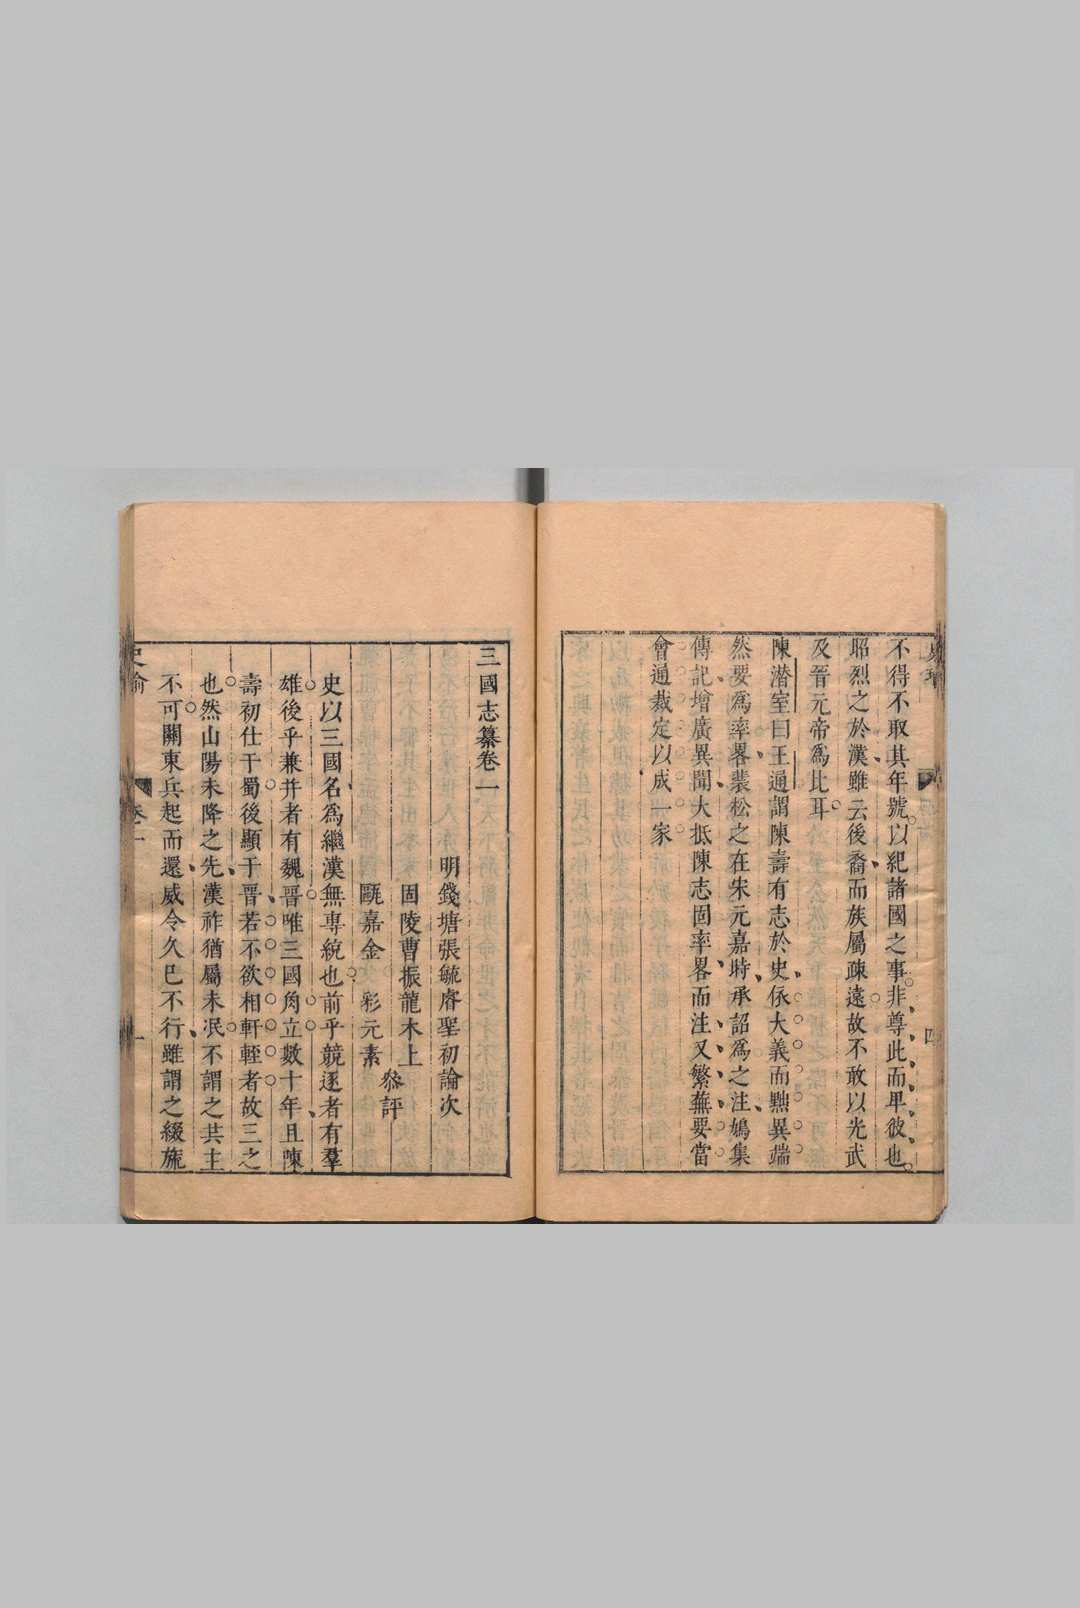 不得不取其年號以紀諸國之事非尊此而卑彼也
昭烈之於漢雖云後裔而族屬疎遠故不敢以光武
及晉元帝爲比耳
陳潜室曰王通謂陳壽有志於史依大義而黜異端
然要爲率畧裴松之在朱元嘉時承詔爲之注鳩集
傳記增廣異聞大抵陳志固率畧而注又繁蕪要當
會通裁定以成一家
四
三國志纂卷一
明錢塘張毓睿聖初論次
固陵曹振龍木上
甌嘉金 彩元素
叅評
史以三國名爲繼漢無專統也前乎競逐者有羣
雄後乎兼并者有魏晋唯三國角立數十年且陳
壽初仕于蜀後顯于晋若不欲相軒輊者故三之
也然山陽未降之先漢祚猶屬未泯不謂之共主
不可關東兵起而還威令久已不行雖謂之綴旒
卷一
一